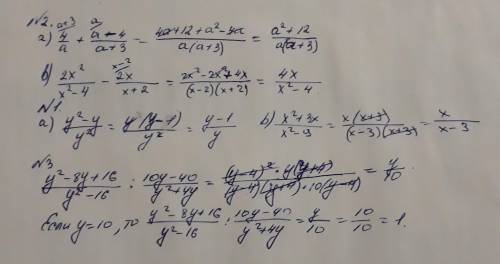 N2.
a) 4/a + a-4/a+3 = 4a+12+a²-4a/a(a+3) = a²+12/a(a+3)
б) 2x²/x²-4 - 2x/x+2 = 2x²-2x²+4x/(x-2)(x+2) = 4x/x²-4
N1
a) y²-y/y² = y(y-1)/y² = y-1/y б) x²+3x/x²-9 = x(x+3)/(x-3)(x+3) = x/x-3
N3
y²-8y+16/y²-16 : 10y-40/y²+4y = (y-4)²·y(y+4)/(y-4)(y+4)·10(y-4) = y/10.
Если y=10, то y²-8y+16/y²-16 : 10y-40/y²+4y = y/10 = 10/10 = 1.